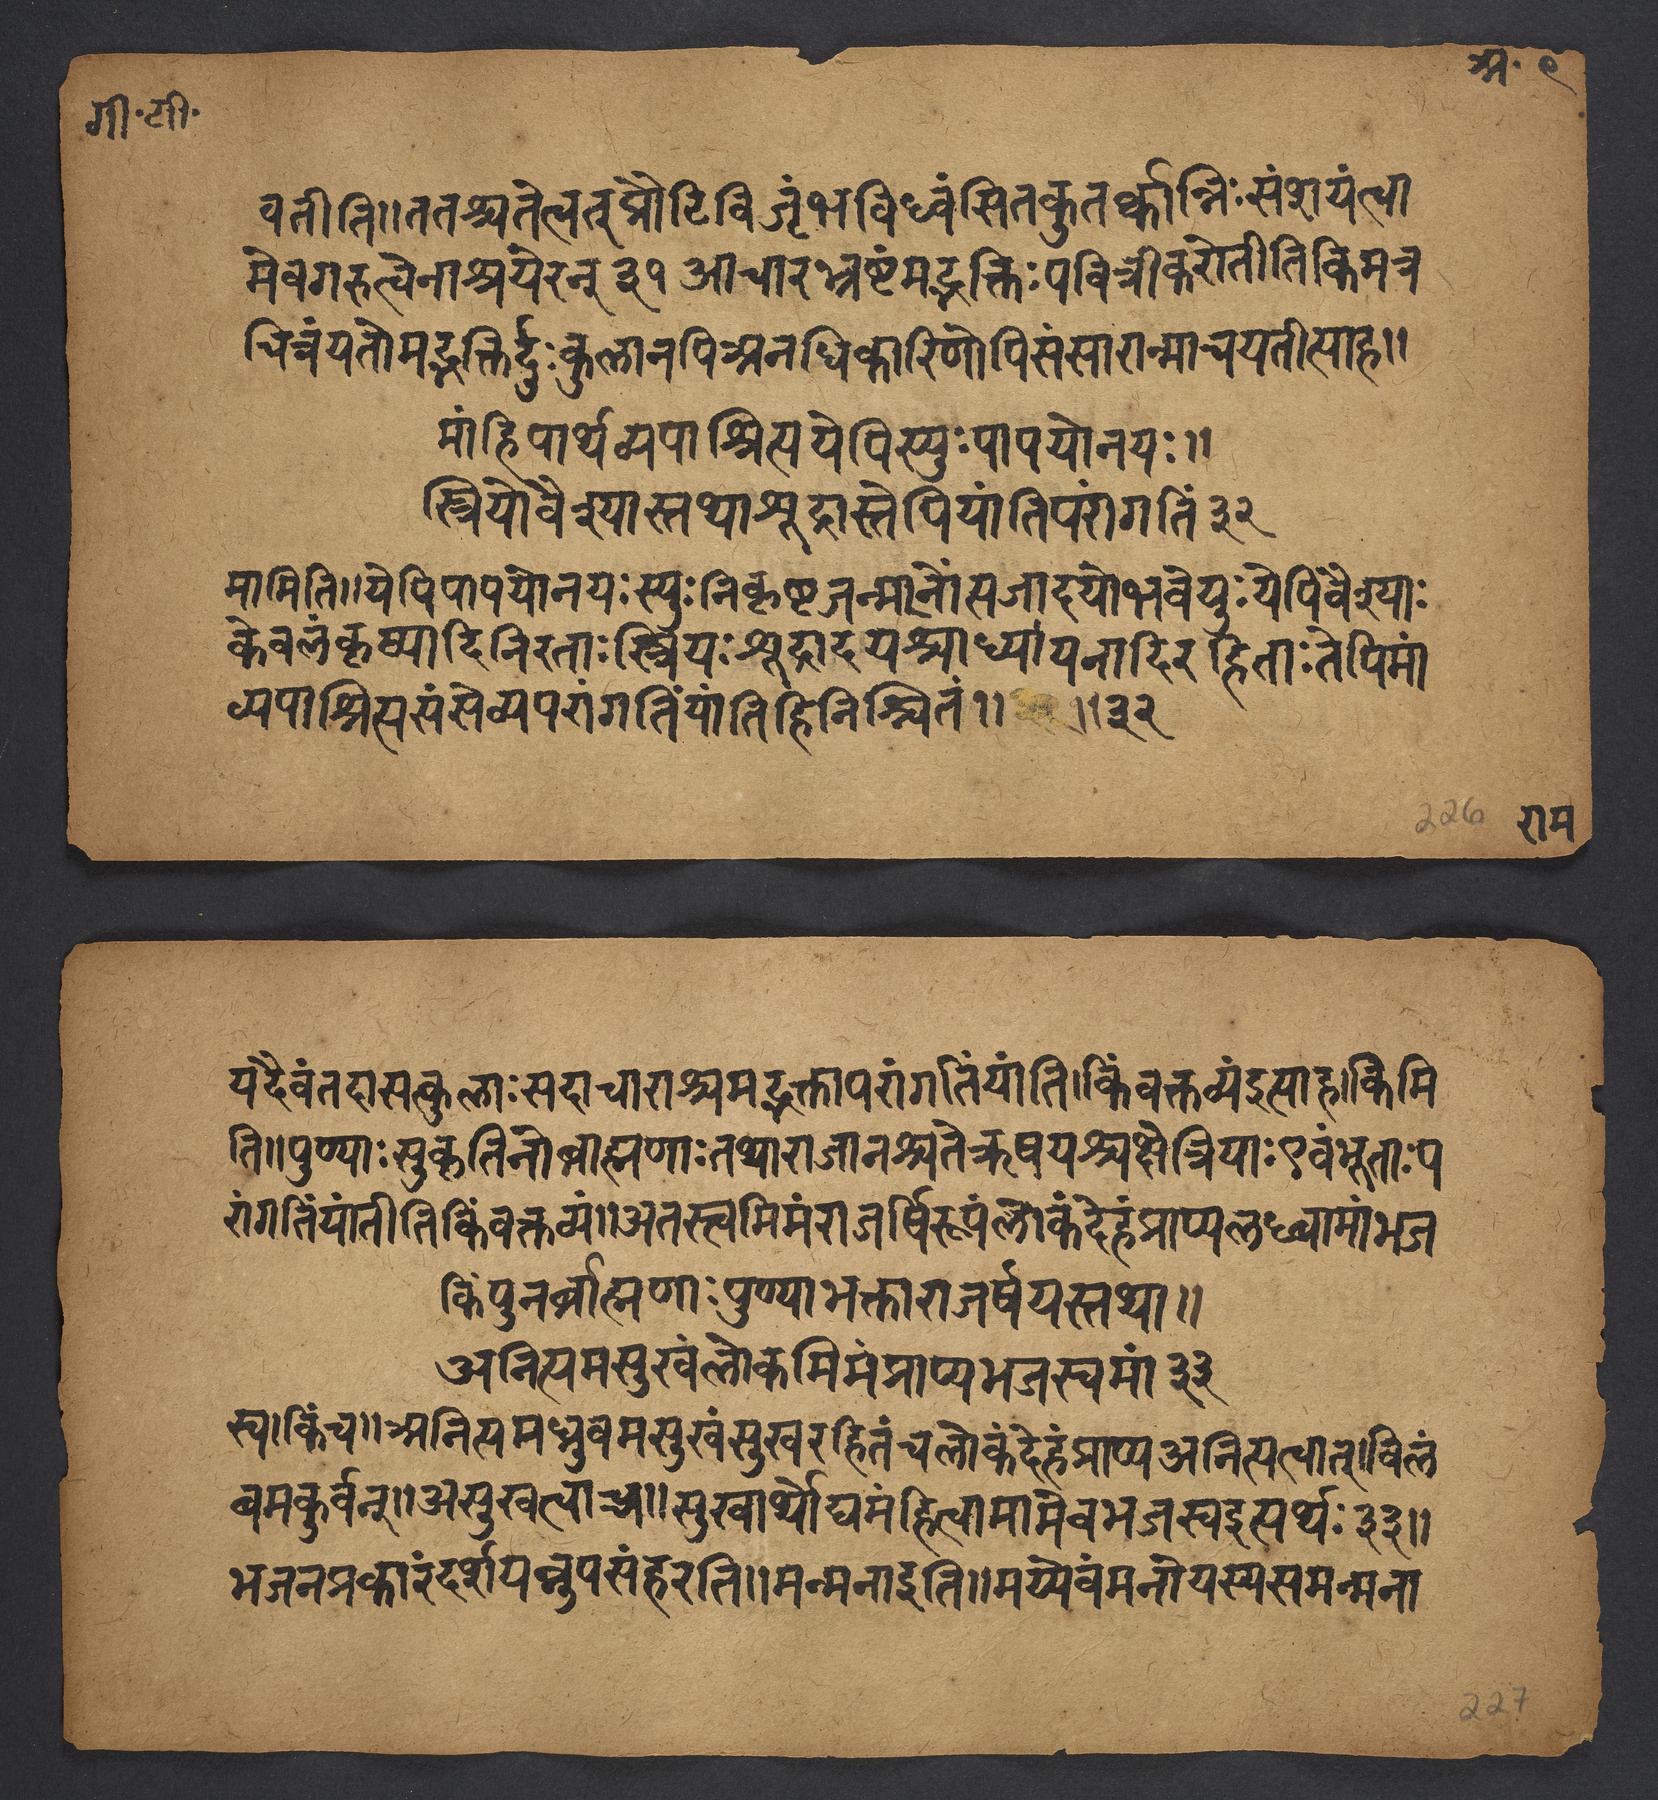 गी॰टी॰
अ॰ ९
वतीति॥ततश्चतेत्वत्प्रौटिविजृंभविध्वंसितकुतर्कान्निःसंशयंत्वा
मेवगरुत्वेनाश्रयेरन् ३१ आचारभ्रष्टंमद्भक्तिःपवित्रीकरोतीतिकिमत्र
चित्रंयतोमद्भक्तिर्दुःकुलानपिअनधिकारिणोपिसंसारान्माचयतीत्याह॥
मांहिपार्थव्यपाश्रित्ययेपिस्युःपापयोनयः॥
स्त्रियोवैश्यास्तथाश्रूद्रास्तेपियांतिपरांगतिं ३२
मामिति॥येपिपापयोनयःस्युःनिकृष्टजन्मानोंसजादयोभवेयुःयेपिवैश्याः
केवलंकृष्यादिनिरताःस्त्रियःश्रूद्रादयश्चाध्यायनादिरहिताःतेपिमां
व्यपाश्रित्यसंसेव्यपरांगतिंयांतिहिनिश्चितं॥ ॥३२
226 राम
यदैवंतदासत्कुलाःसदाचाराश्चमद्भक्तापरांगतिंयांति।किंवक्तव्यंइत्याह।किमि
ति॥पुण्याःसुकृतिनोब्राह्मणाःतथाराजानश्चतेऋषयश्चक्षेत्रियाःएवंभूताःप
रांगतिंयांतीतिकिंवक्तव्यं॥अतस्त्वमिमंराजर्षिरूपंलोकंदेहंप्राप्यलध्वामांभज
किंपुनर्ब्राह्मणाःपुण्याभक्ताराजर्षयस्तथा॥
अनित्यमसुखंलोकमिमंप्राप्यभजस्वमां ३३
स्व।किंच॥अनित्यमध्रुवमसुखंसुखरहितंचलोकंदेहंप्राप्यअनित्यत्वात्।विलं
बमकुर्वन्॥असुखत्वाच्च॥सुखार्थोद्यमंहित्वामामेवभजस्वइत्यर्थः३३॥
भजनप्रकारंदर्शयन्नुपसंहरति॥मन्मनाइति॥मय्येवंमनोयस्यसमन्मना
227